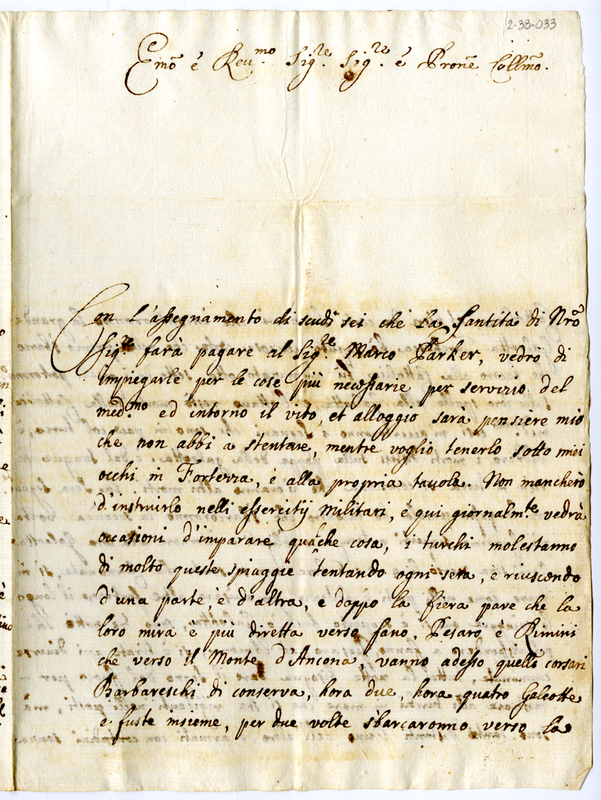 2-38-033
Emõ è Reu.mo Sig.re Sig.re è Pronẽ Collmõ.
Con l'assegnamento di scudi sei che la Santità di Nrõ
Sig.re farà pagare al Sig.re Marco Parker, vedrò di
impiegarle per le cose più necessarie per servizio del
med.mo ed intorno il vito, et alloggio sarà pensiere mio
che non abbi a stentare, mentre voglio tenerlo sotto miei
occhi in Fortezza, è alla propria tavola. Non mancherò
d'instruirlo nelli essercitij militari, è qui giornalm.te vedrà
occasioni d'imparare qualche cosa, i turchi molestanno
di molto queste spiaggie tentando ogni sera, e riuscendo
d'una parte, è d'altra, e doppo la fiera pare che la
loro mira è più diretta verso fano, Pesaro è Rimini
che verso il Monte d'Ancona, vanno adesso quelli corsari
Barbareschi di conserva, hora due, hora quatro Galeotte
e fuste insieme, per due volte sbarcaronno verso la